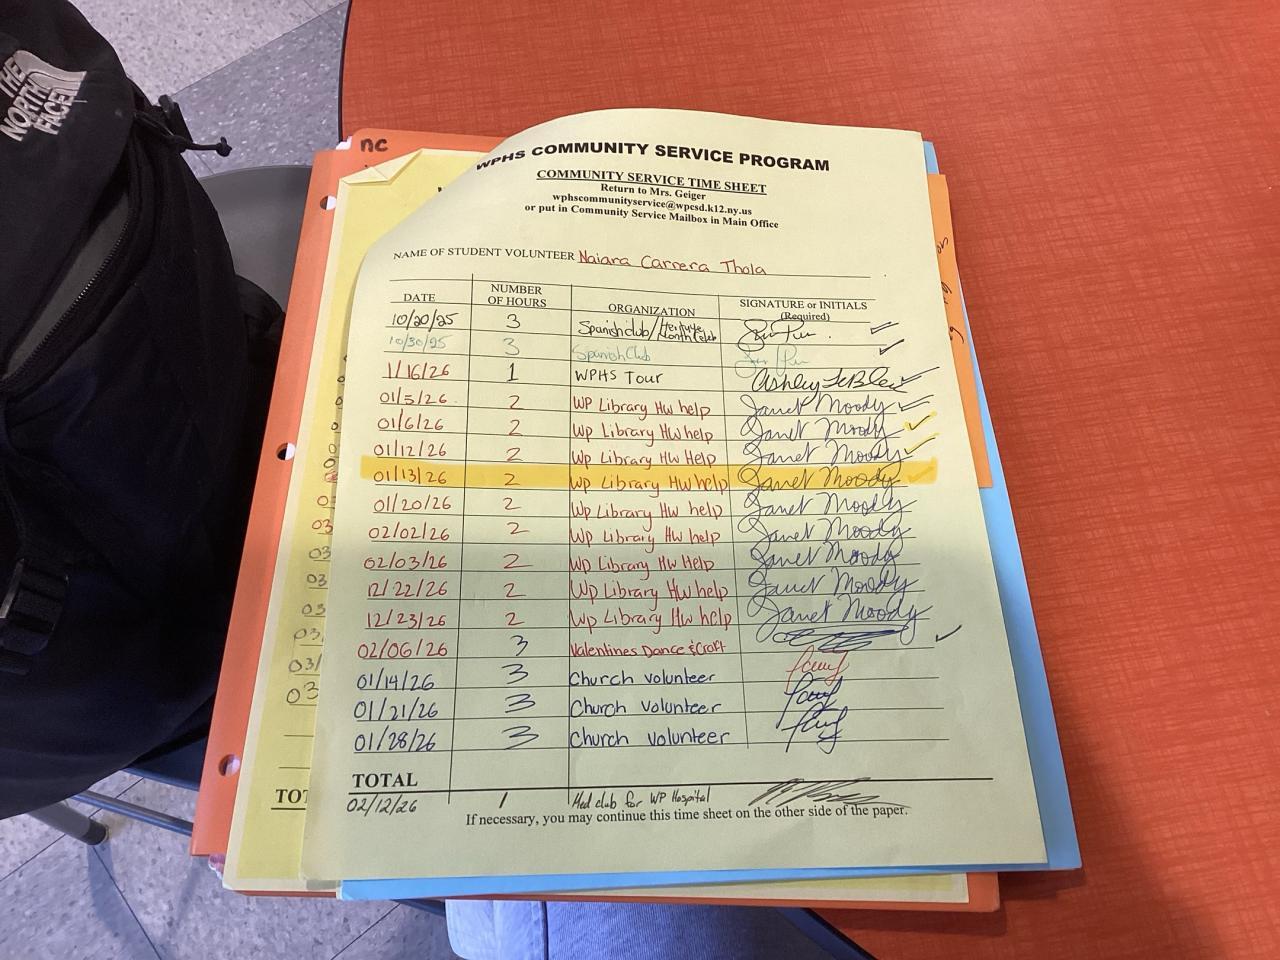 THE
NORTH
FACE
nc
WPHS COMMUNITY SERVICE PROGRAM
COMMUNITY SERVICE TIME SHEET
Return to Mrs. Geiger
wphscommunityservice@wpcsd.k12.ny.us
or put in Community Service Mailbox in Main Office
NAME OF STUDENT VOLUNTEER Naiara Carrera Thola
DATE NUMBER OF HOURS ORGANIZATION SIGNATURE or INITIALS (Required)
10/20/25 3 Spanish club/
10/30/25 3 Spanish Club
1/16/26 1 WPHS Tour Ashley
01/5/26 2 WP Library HW help Janet Moody
01/6/26 2 Wp Library HW help Janet Moody
01/12/26 2 Wp Library HW Help Janet Moody
01/13/26 2 Wp Library HW help Janet Moody
01/20/26 2 Wp Library HW help Janet Moody
02/02/26 2 Wp Library HW help Janet Moody
02/03/26 2 Wp Library HW help Janet Moody
12/22/26 2 Wp Library HW help Janet Moody
12/23/26 2 Wp Library HW help Janet Moody
02/06/26 3 Valentines Dance & Craft
01/14/26 3 Church volunteer
01/21/26 3 Church volunteer
01/28/26 3 Church volunteer
TOTAL
02/12/26 1 Med club for WP Hospital
If necessary, you may continue this time sheet on the other side of the paper.